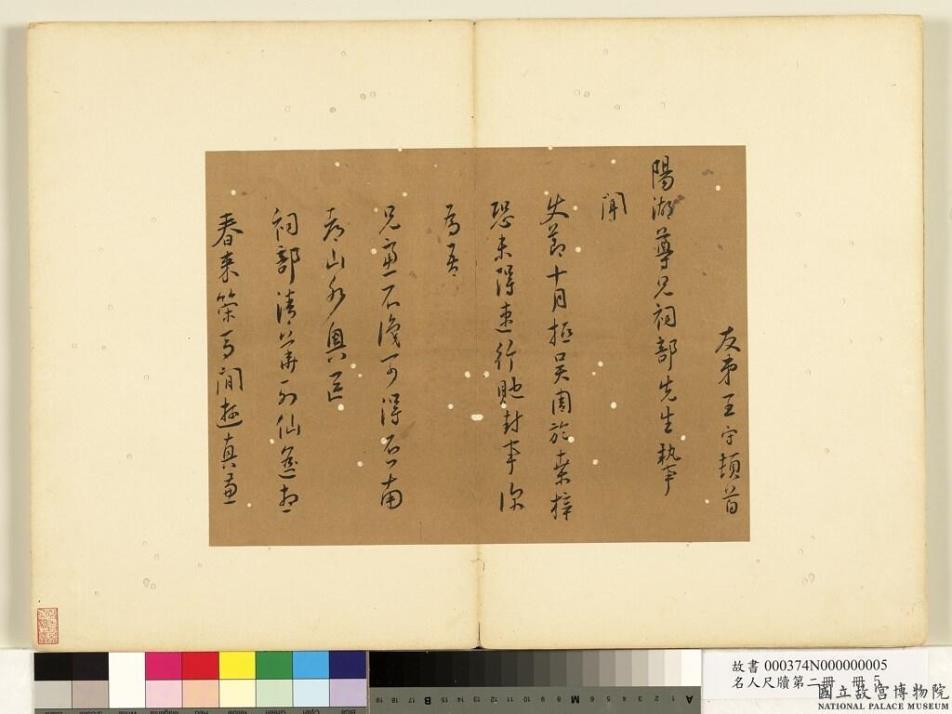 友弟王守頓首
陽湖尊兄祠部先生執事
聞
丈節十月抵吳固於桑梓
恐未得速行貤封事深
為吾
兄慮
石湖可得否南
都山水奧區
祠部清華列仙
春來策馬閒遊真
故書 000374N000000005
名人尺牘第二冊 冊 5
國立故宮博物院
NATIONAL PALACE MUSEUM